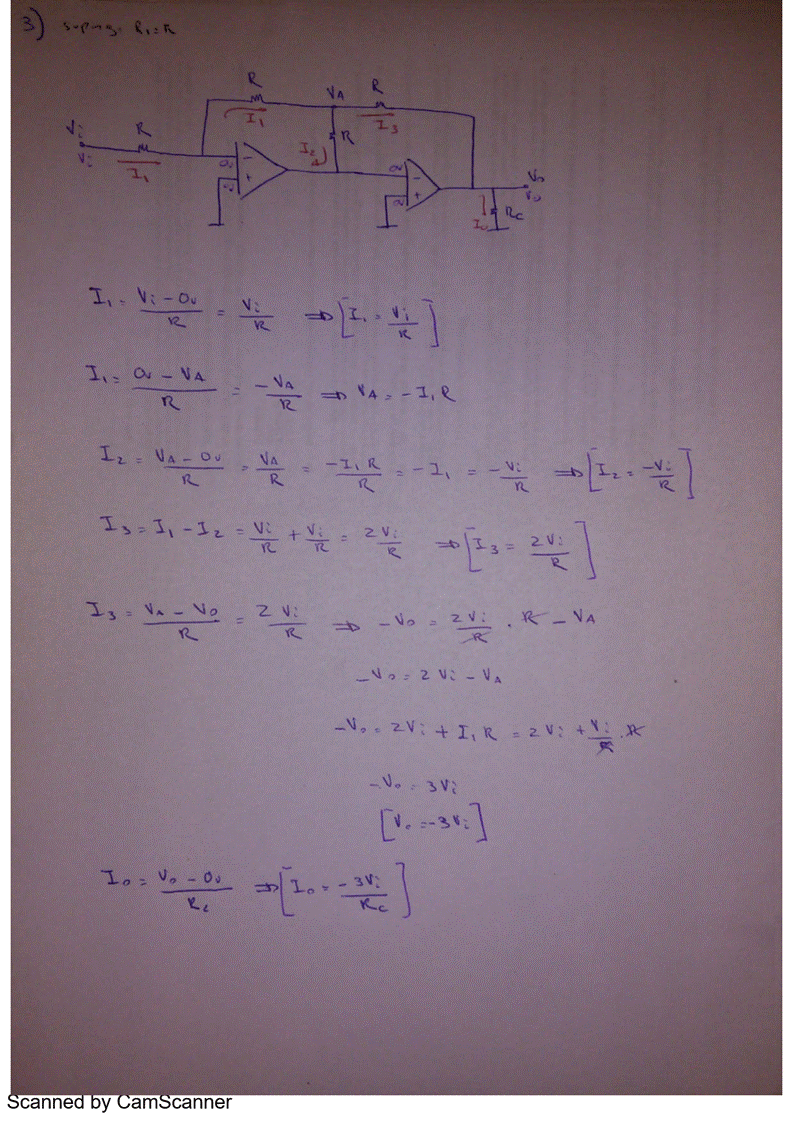 3) supong. R₁=R
R VA R
Vi R I₁ R I₃
Vi I₁ I₂ Vo
- + - + Vo
I₀ Rc
I₁ = (Vi - 0v)/R = Vi/R ⇒ [I₁ = Vi/R]
I₁ = (0v - VA)/R = -VA/R ⇒ VA = -I₁R
I₂ = (VA - 0v)/R = VA/R = -I₁R/R = -I₁ = -Vi/R ⇒ [I₂ = -Vi/R]
I₃ = I₁ - I₂ = Vi/R + Vi/R = 2Vi/R ⇒ [I₃ = 2Vi/R]
I₃ = (VA - Vo)/R = 2Vi/R ⇒ -Vo = 2Vi/R . R - VA
-Vo = 2Vi - VA
-Vo = 2Vi + I₁R = 2Vi + Vi/R . R
-Vo = 3Vi
[Vo = -3Vi]
I₀ = (Vo - 0v)/Rc ⇒ [I₀ = -3Vi/Rc]
Scanned by CamScanner